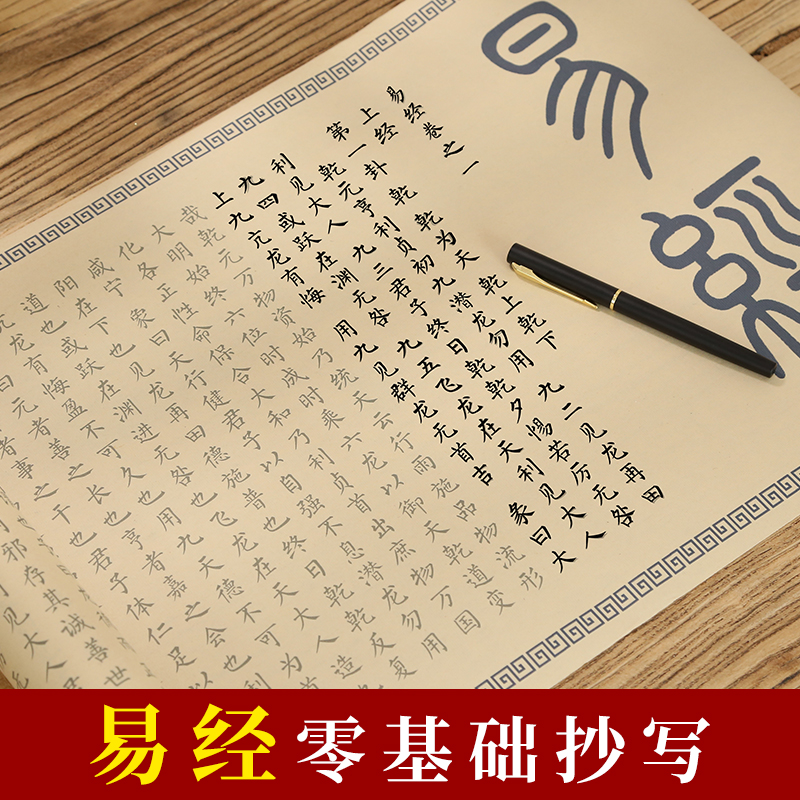 易經
易经卷之一
上经
第一卦 乾 乾为天 乾上乾下
乾元亨利贞初九潜龙勿用 九二见龙再田
利见大人 九三君子终日乾乾夕惕若厉无咎
九四或跃在渊无咎 九五飞龙在天利见大人
上九亢龙有悔 用九见群龙无首吉 象曰大
哉乾元万物资始乃统天云行雨施品物流形
大明始终六位时成时乘六龙以御天乾道变
化各正性命保合大和乃利贞首出庶物万国
咸宁象曰天行健君子以自强不息潜龙勿用
阳在下也见龙再田德施普也终日乾乾反复
道也或跃在渊进无咎也飞龙在天大人造也
亢龙有悔盈不可久也用九天德不可为首
曰元者善之长也亨者嘉之会也利
者事之干也君子体仁足以
邪存其诚善世
见大人
易经零基础抄写